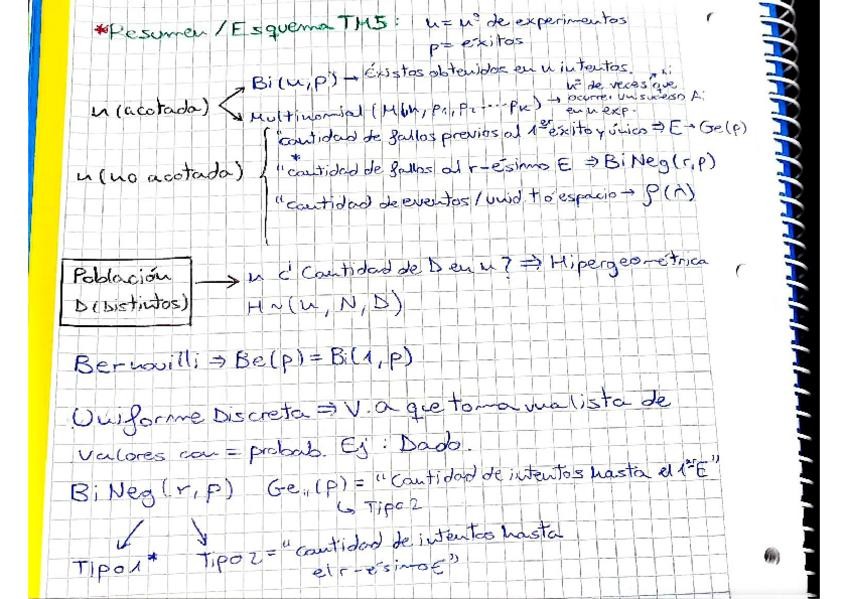 *Resumen / Esquema TM5: n = nº de experimentos
p = éxitos
n (acotada) Bi(n,p) → Éxistos obtenidos en n intentos.
Multinomial (M(n, p1, p2 ... pk) → nº de veces que ocurre un suceso Ai en n exp.
n (no acotada) "cantidad de fallos previos al 1er éxito y único ⇒ E → Ge(p)
* "cantidad de fallos al r-ésimo E ⇒ BiNeg(r,p)
"cantidad de eventos / unid t o espacio → P(λ)
Población
D (Distintos) → n ¿ Cantidad de D en n? ⇒ Hipergeométrica
H ~ (n, N, D)
Bernouilli ⇒ Be(p) = Bi(1,p)
Uniforme Discreta ⇒ V.a que toma una lista de
valores con = probab. Ej: Dado.
BiNeg(r,p) Ge (p) = "Cantidad de intentos hasta el 1er E"
↳ Tipo 2
Tipo 1 * Tipo 2 = "cantidad de intentos hasta
el r-ésimo E"